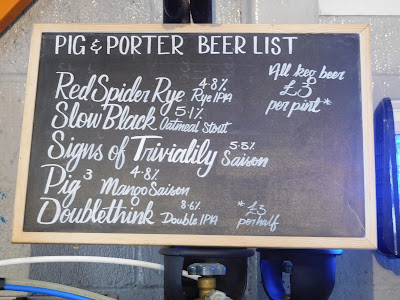 PIG & PORTER BEER LIST
Red Spider Rye 4·8% Rye IPA
Slow Black 5·1% Oatmeal Stout
Signs of Triviality 5·5% Saison
Pig³ 4·8% Mango Saison
Doublethink 8·6% Double IPA
All keg beer
£3
per pint*
*£3
per half